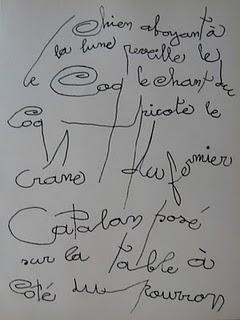 Le Chien aboyant à
la lune reveille le
Coq le chant du
Coq picote le
Crane du fermier
Catalan posé
sur la table à
Coté du pourron